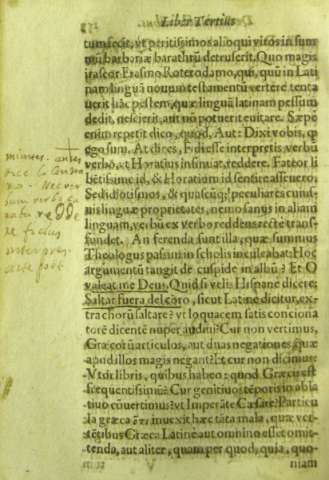 Liber Tertius
tum fecit, vt peritissimos alioqui viros in sum
mũ barbariæ barathrũ detruserit. Quo magis
irascor Erasmo Roterodamo, qui, quũ in Lati
na linguã nouum testamentũ vertere tenta
uerit hãc pestem, quæ linguã latinam pessum
dedit, nescierit, aut nõ potuerit euitare. Sæpe
enim repetit dico, quod, Aut: Dixi vobis, qp
ego sum. At dices, Fidi esse interpretis verbũ
verbo, et Horatius insinuat, reddere. Fateor li
bẽtissime id, & Horatium id sentire asseuero.
Sed idiotismos, & quascũq; peculiares cuius
uis linguæ proprietates, nemo sanus in aliam
linguam, verbũ ex verbo reddens recte trans-
fundet. An ferenda sunt illa, quæ summus
Theologus passim in scholis inculcabat: Hoc
argumentũ tangit de cuspide in albũ? Et O
valeat me Deus. Quid si velit Hispane dicere;
Saltar fuera del coro, sicut Latine dicitur, ex-
tra chorũ saltare? vt loquacem satis conciona
torẽ dicentẽ nuper audiui? Cur non vertimus,
Græcorũ articulos, aut duas negationes quæ
apud illos magis negant? Et cur non dicimus:
Vtor libris, quibus habeo: quod Græcis est
frequentissimũ? Cur genitiuos tẽporis in abla
tiuo cõuertimus? vt Imperãte Cæsare? Particu
la græca
inuexit hæc tãta mala, quæ ver-
tẽtibus Græca Latine aut omnino esset omit-
tenda, aut aliter, quam per quod, quia, quo-
niam
nec ver
reddere
interpres